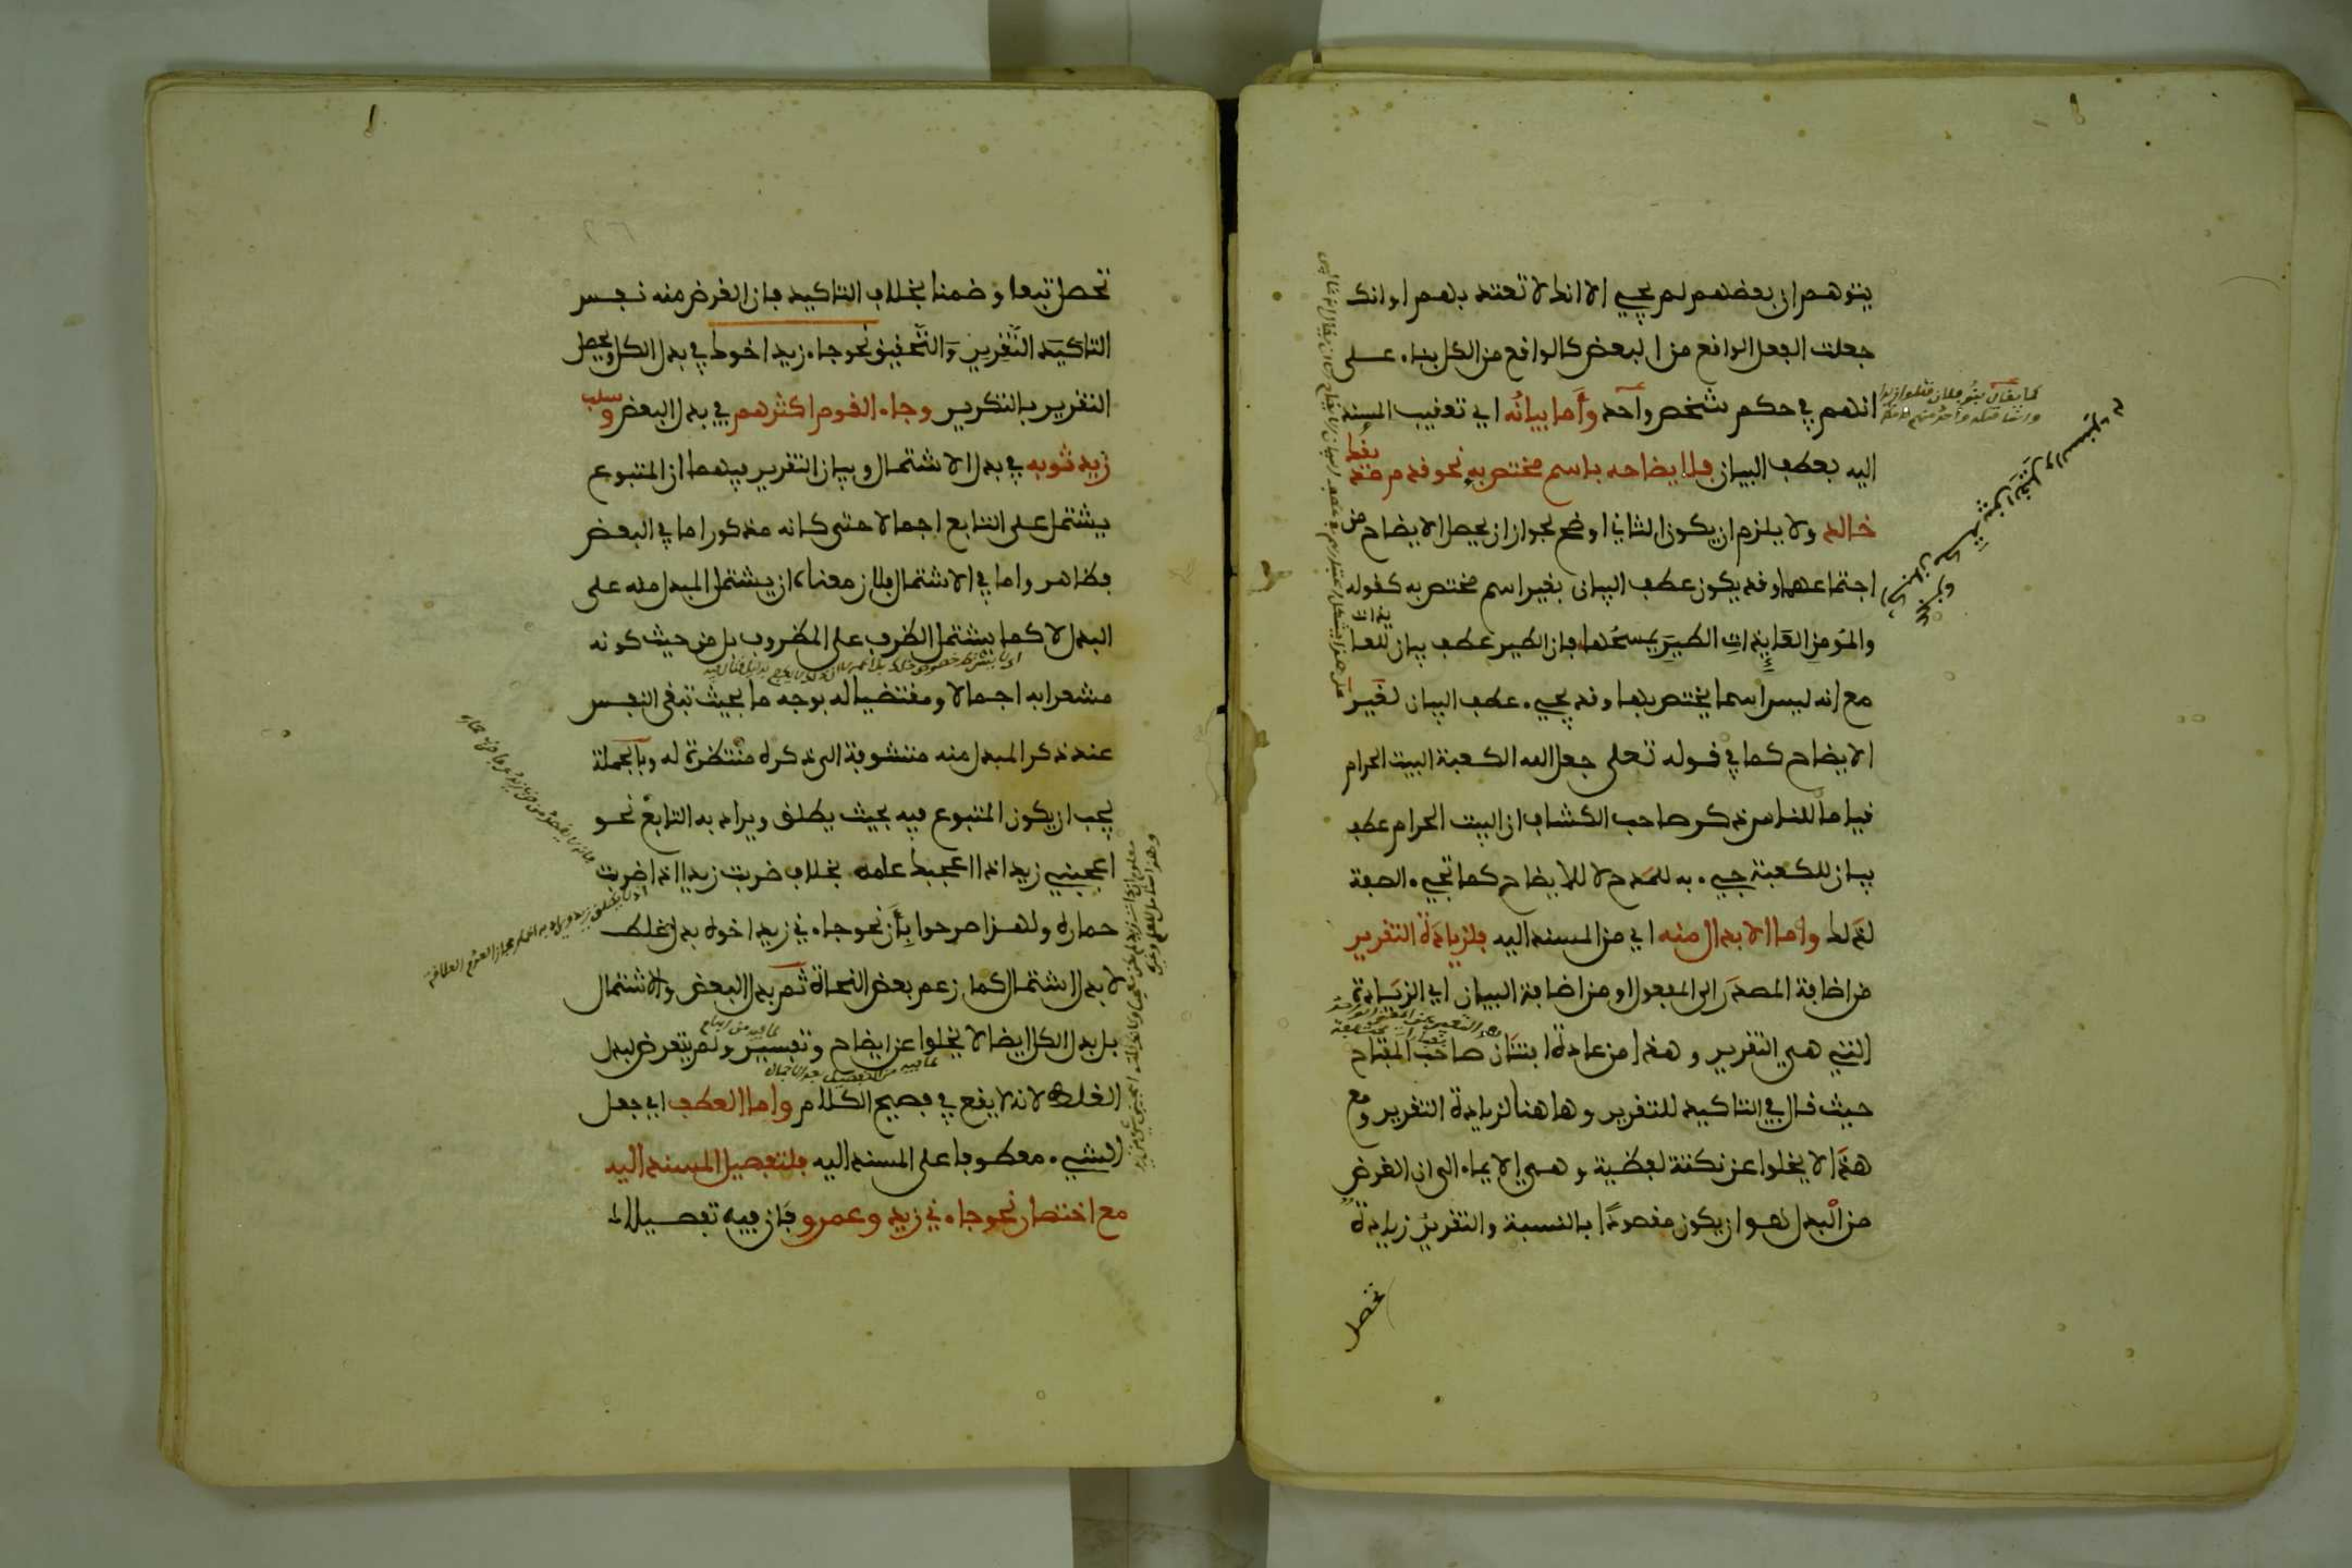 يتوهم ان بعضهم لم يجيء الا انك لا تعتد بهم او انك
جعلت الفعل الواقع من البعض كالواقع من الكل بناء على
انهم في حكم شخص واحد وأما بيانُه اي تعقيب المسند
اليه بعطف البيان فلايضاحه باسم مختص به نحو قدم صديقك
خالد ولا يلزم ان يكون الثاني اوضح لجواز ان يحصل الايضاح من
اجتماعهما وقد يكون عطف البيان بغير اسم مختص به كقوله
والمؤمن العايذات الطير يمسحُها فان الطير عطف بيان للعايذات
مع انه ليس اسما يختص بها وقد يجيء عطف البيان لغير
الايضاح كما في قوله تعلى جعل الله الكعبة البيت الحرام
قياما للناس ذكر صاحب الكشاف ان البيت الحرام عطف
بيان للكعبة جيء به للمدح لا للايضاح كما تجيء الصفة
لذلك وأما الابدال منه اي من المسند اليه فلزيادة التقرير
من اضافة المصدر الى المفعول او من اضافة البيان اي الزيادة
التي هي التقرير وهذا من عادة افتنان صاحب المفتاح
حيث قال في التاكيد للتقرير وهاهنا لزيادة التقرير ومع
هذا لا يخلوا عن نكتة لفظية وهي الايماء الى ان الغرض
من البدل هو ان يكون مقصودًا بالنسبة والتقرير زيادة
تحصل
تحصل تبعا وضمنا بخلاف التاكيد فان الغرض منه نفس
التاكيد التقرير والتحقيق نحو جاء زيد اخوك في بدل الكل ويحصل
التقرير بالتكرير وجاء القوم اكثرهم في بدل البعض وسلب
زيد ثوبه في بدل الاشتمال وبيان التقرير فيهما ان المتبوع
يشتمل على التابع اجمالا حتى كانه مذكور اما في البعض
فظاهر واما في الاشتمال فلان معناه ان يشتمل المبدل منه على
البدل لا كما يشتمل الظرف على المظروف بل من حيث كونه
مشعرا به اجمالا ومقتضيا له بوجه ما بحيث تبقى النفس
عند ذكر المبدل منه متشوقة الى ذكره منتظرة له وبالجملة
يجب ان يكون المتبوع فيه بحيث يطلق ويراد به التابع نحو
اعجبني زيد اذا اعجبك علمه بخلاف ضربت زيدا اذا ضربت
حماره ولهذا صرحوا بأن نحو جاءني زيد اخوه بدل غلط
لا بدل اشتمال كما زعم بعض النحاة ثم بدل البعض والاشتمال
بل بدل الكل ايضا لا يخلوا عن ايضاح وتفسير ولم يتعرض لبدل
الغلط لانه لا يقع في فصيح الكلام واما العطف اي جعل
الشيء معطوفا على المسند اليه فلتفصيل المسند اليه
مع اختصار نحو جاءني زيد وعمرو فان فيه تفصيلا